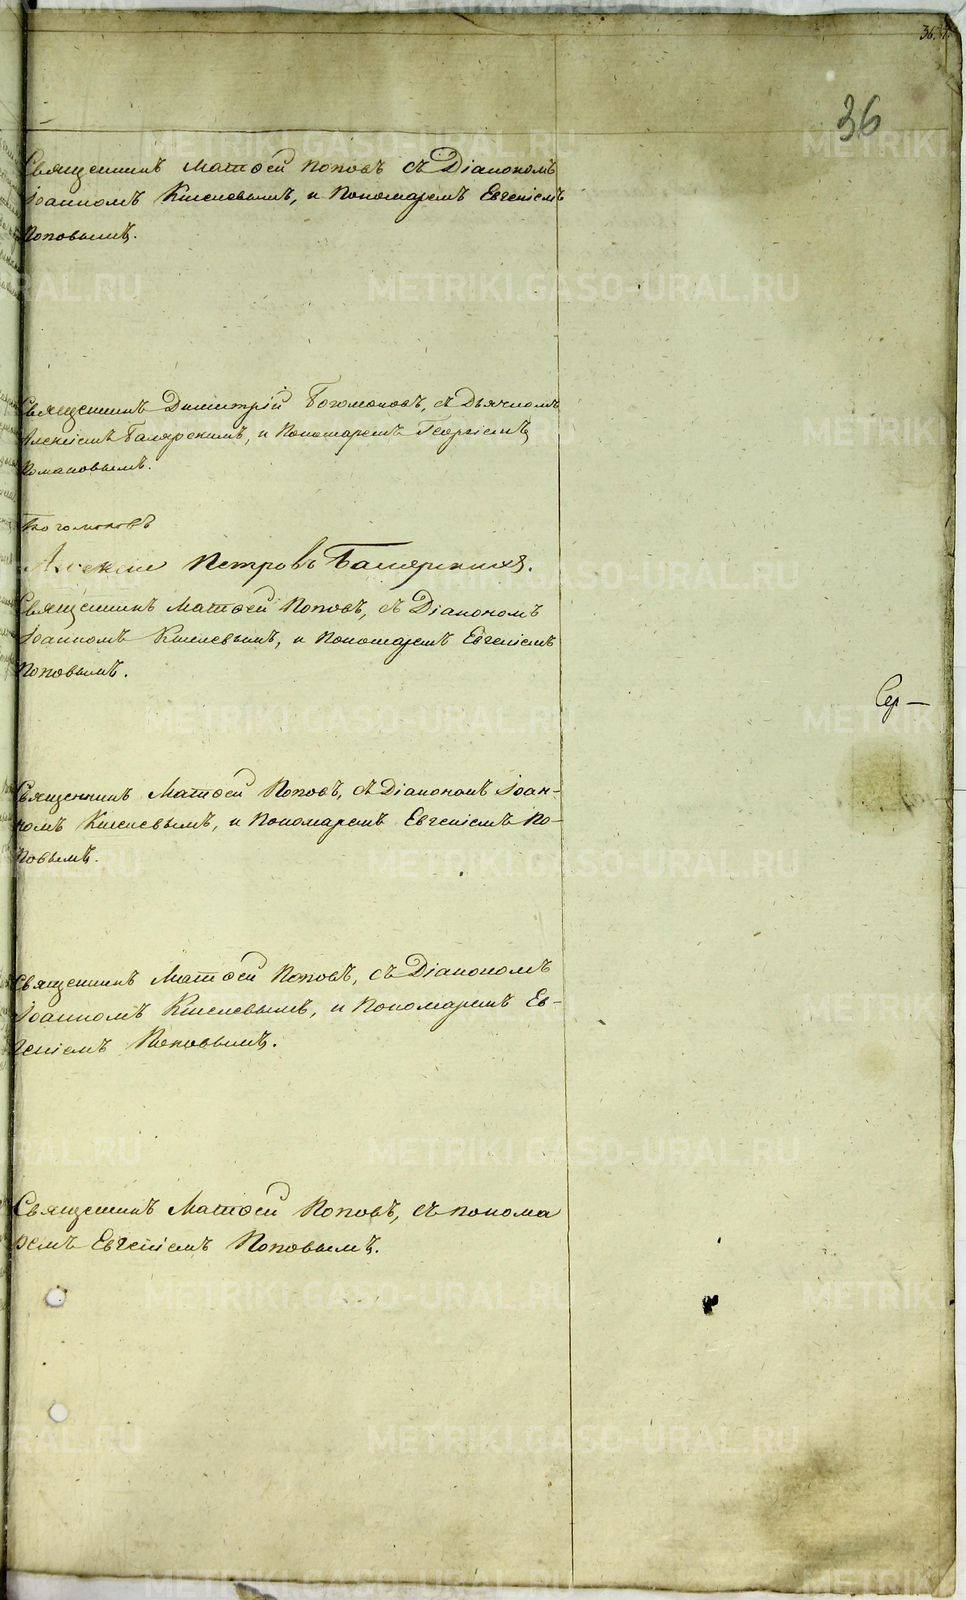 36
Священникъ Матѳей Поповъ съ Діакономъ
Іоанномъ Киселевымъ, и Пономаремъ Евгеніемъ
Поповымъ.
Священникъ Димитрій Богомоловъ, съ Дьячкомъ
Алексіемъ и Пономаремъ Георгіемъ
Романовымъ.
Богомоловъ
Алексей Петровъ
Священникъ Матѳей Поповъ, съ Діакономъ
Іоанномъ Киселевымъ, и Пономаремъ Евгеніемъ
Поповымъ.
Сер—
Священникъ Матѳей Поповъ, съ Діакономъ Іоан-
номъ Киселевымъ, и Пономаремъ Евгеніемъ По-
повымъ.
Священникъ Матѳей Поповъ, съ Діакономъ
Іоанномъ Киселевымъ, и Пономаремъ Ев-
геніемъ Поповымъ.
Священникъ Матѳей Поповъ, съ понома
ремъ Евгеніемъ Поповымъ.
METRIKI.GASO-URAL.RU